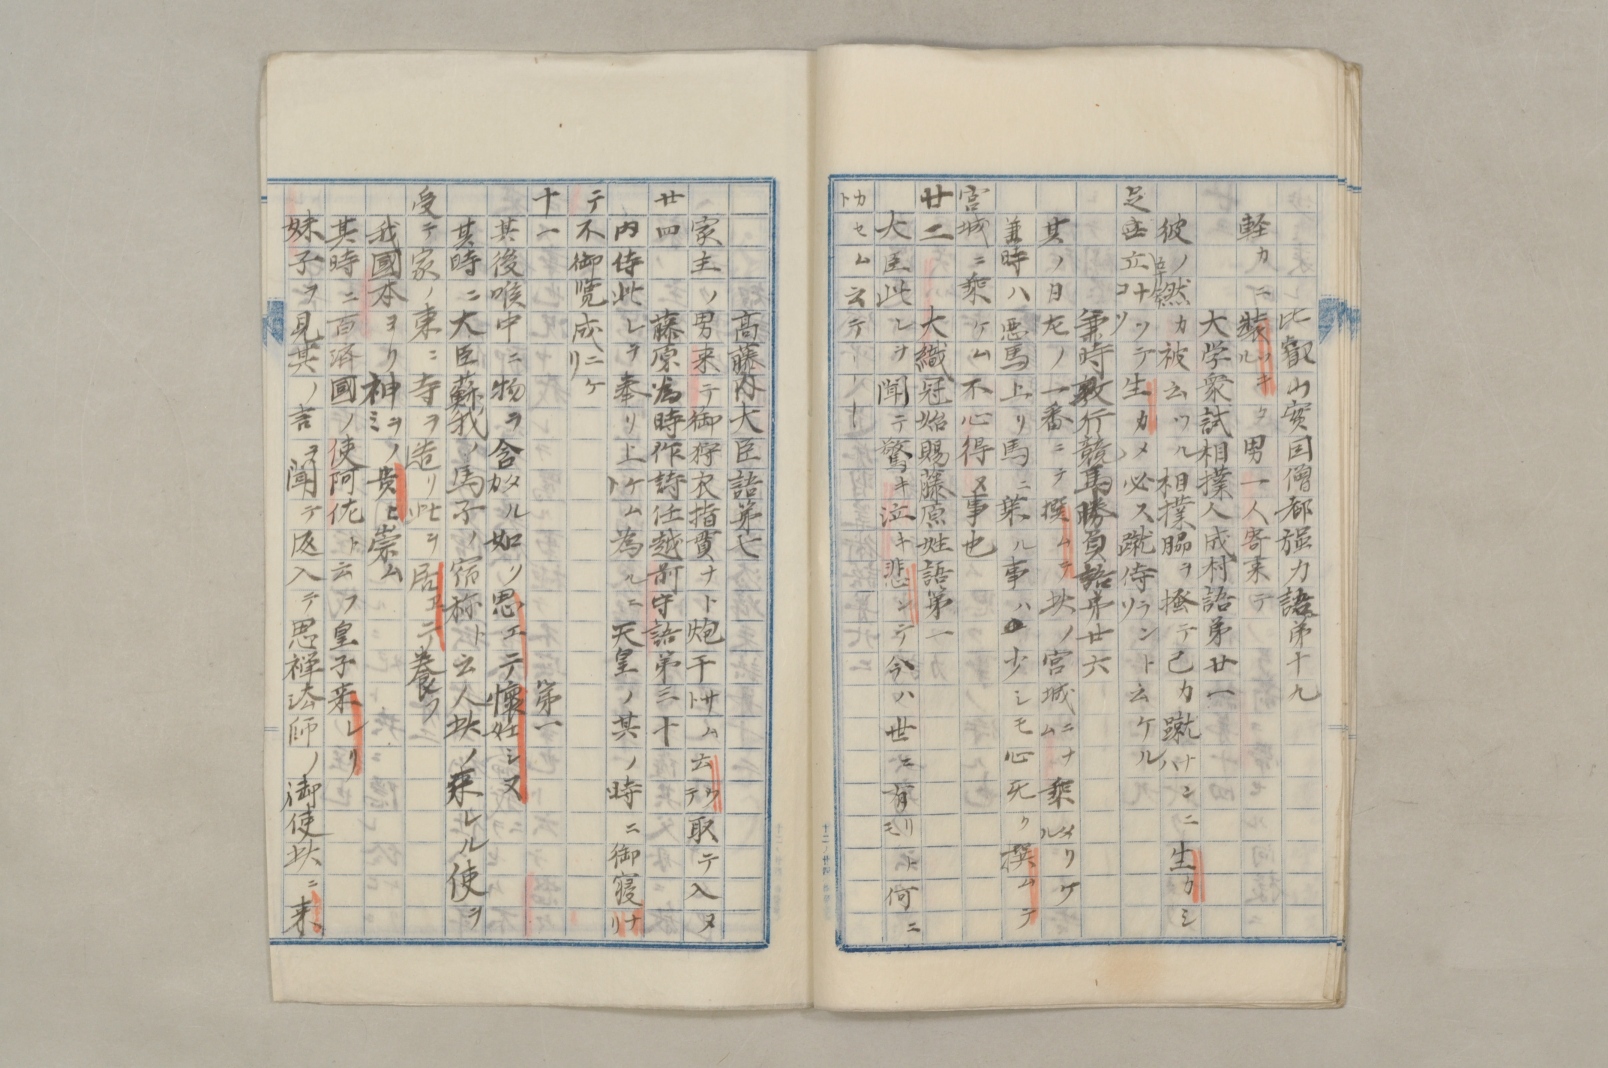 比叡山実因僧都強力語第十九
軽カニ装ルキタ男一人寄来テ
大学衆試相撲人成村語第廿一
彼ノ然カ被云ツル相撲腸ヲ搔テ己カ蹴ハンニ生カシ
足
立ナツテ生カメ必ス蹴侍ランリト云ケル
兼時敦行競馬勝負語第廿六
其ノ日左ノ一番ニテ撰ムテ此ノ宮城ニナム乗ルメリケ
兼時ハ悪馬上リ馬ニ乗ル事ハ少シモ心死ク撰ムテ
宮城ニ乗ケム不心得ヌ事也
廿二 大織冠始賜藤原姓語第一
大臣此レヲ聞テ驚キ泣キ悲ンテ今ハ世ニ有リトモ何ニ
カセムト云テ
高藤内大臣語第七
家主ノ男来テ御狩衣指貫ナト炮干サムト云テ取テ入ヌ
廿四 藤原為時作詩任越前守語第三十
内侍此レヲ奉リ上ケム為ルニ天皇ノ其ノ時ニ御寝ナリ
テ不御覧成ニケリ
十一 第一
其後喉中ニ物ヲ含メルカ如ソ思エテ懐妊シヌ
其時ニ大臣蘇我ノ馬子ノ宿祢ト云人此ノ来レル使ヲ
受テ家ノ東ニ寺ヲ造リ此ヲ居エテ養フ
我國本ヨリ神ミヲノ貴ヒ崇ム
其時ニ百済國ノ使阿佐ト云フ皇子来レリ
妹子ヲ見其ノ言ヲ聞テ返入テ思禅法師ノ御使此ニ来